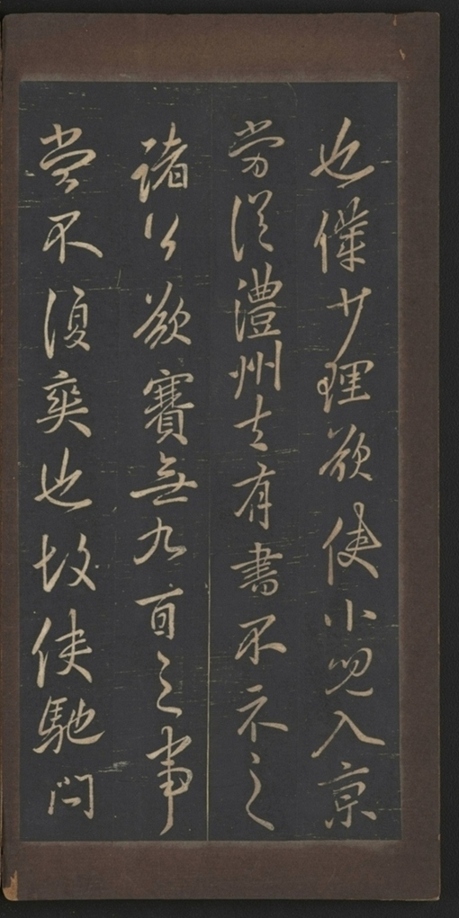 也僕理欲使小兒入京
從澧州去有書不示之
諸公欲賽無九百之事
當不復爽也故使馳問